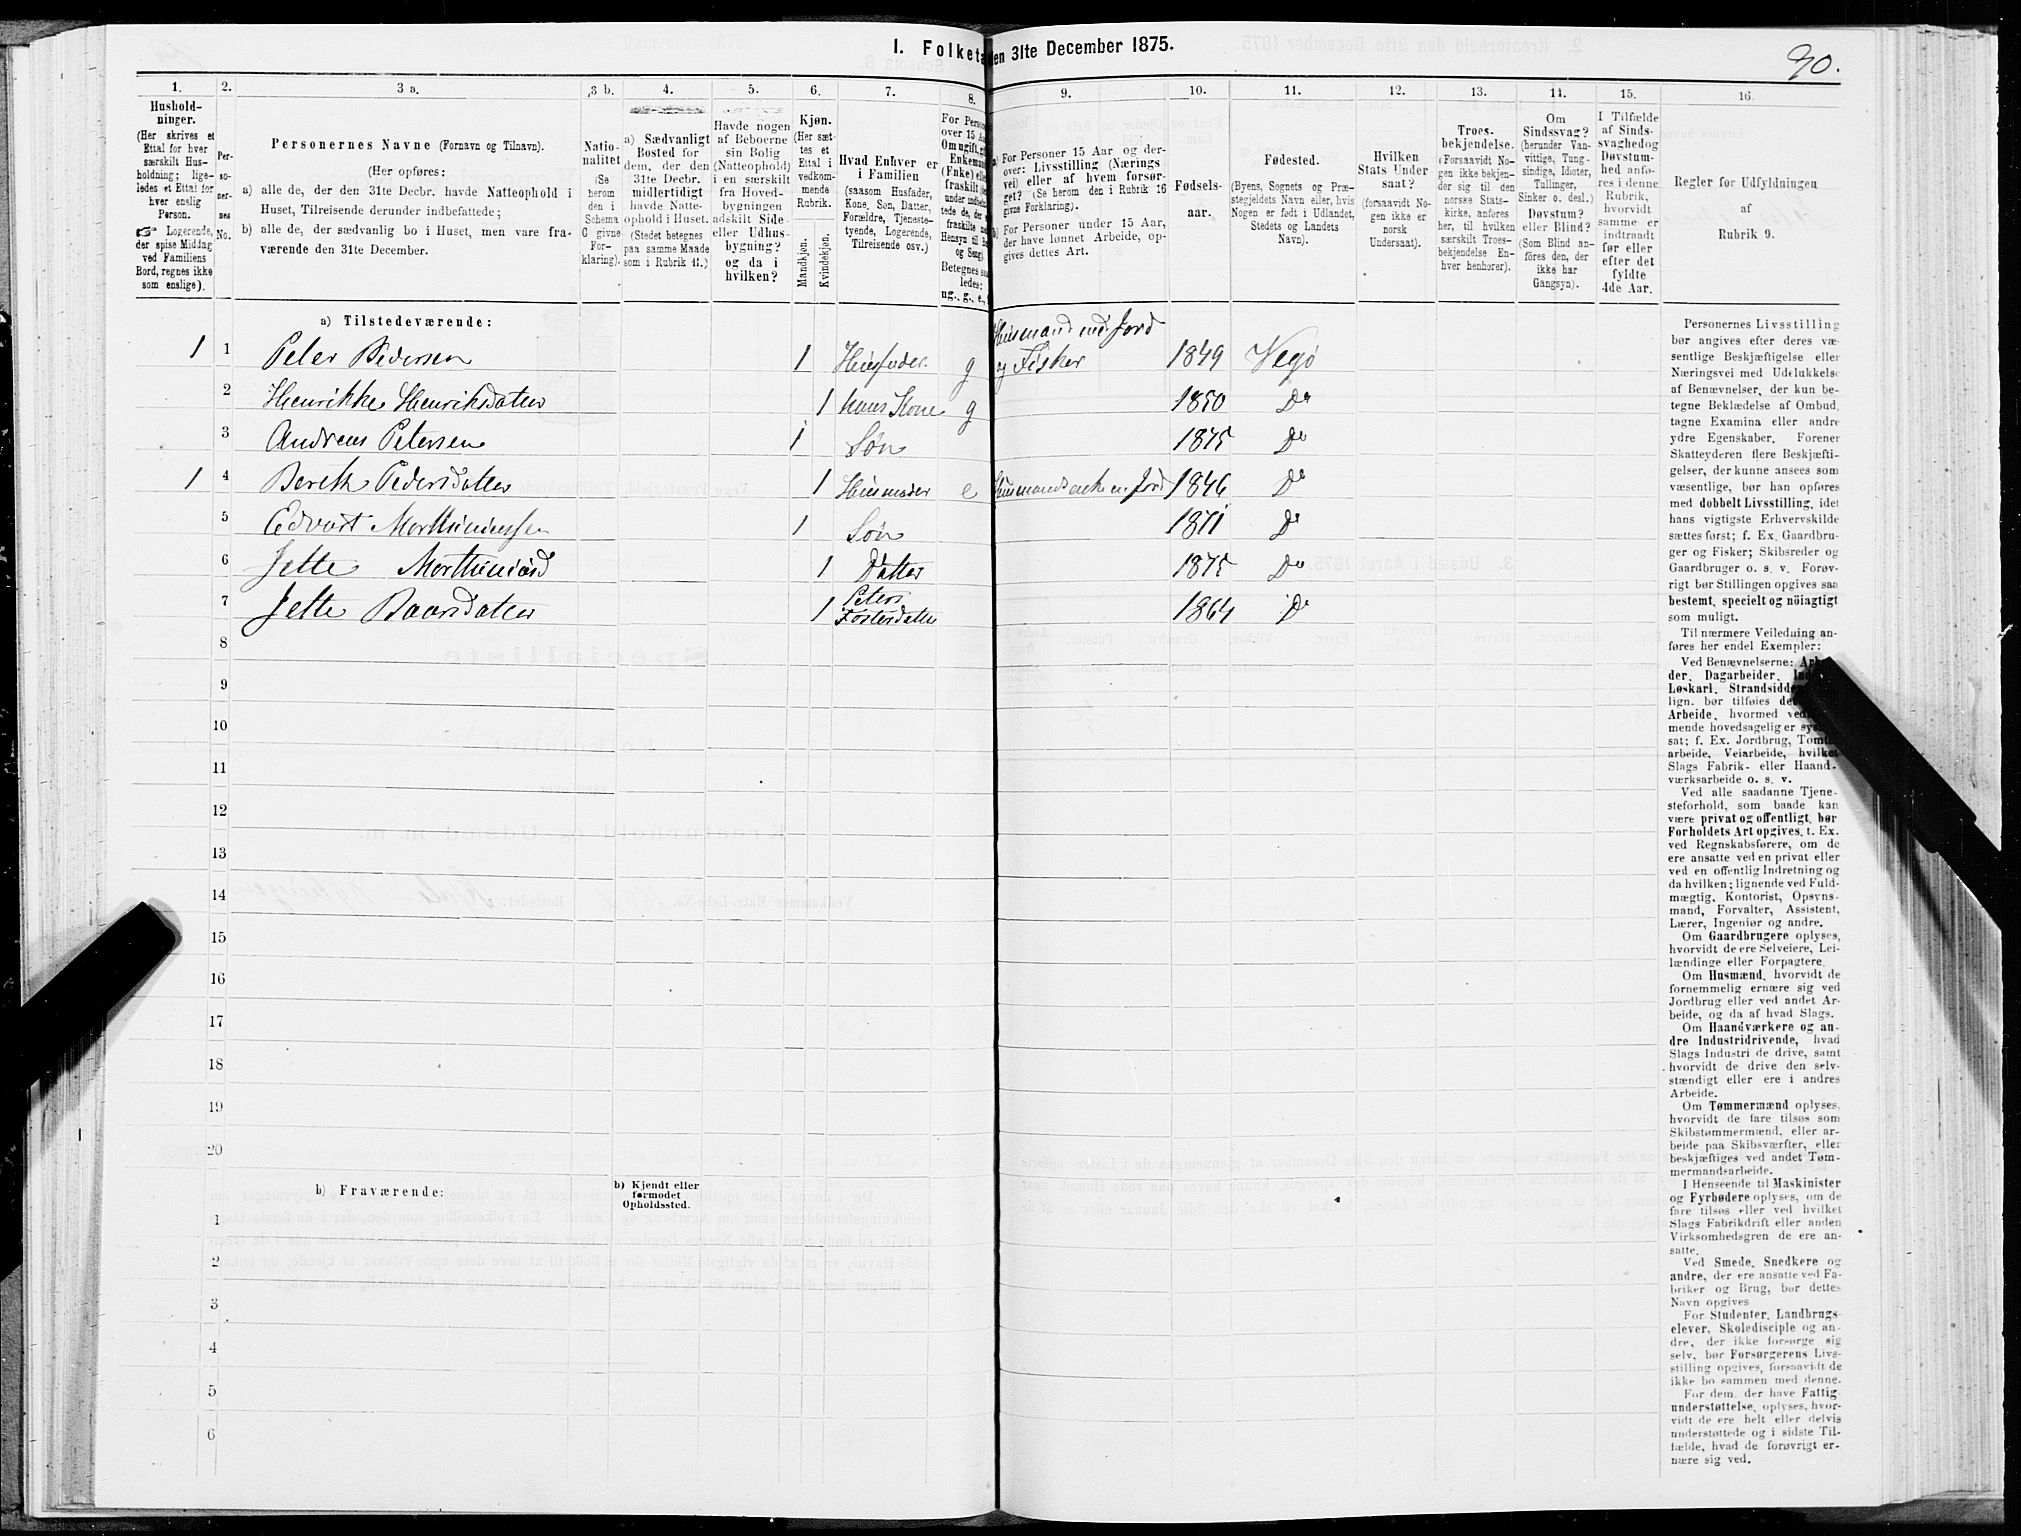 I. Folketa en 31te December 1875.
90.
1.
2.
3 a.
3 b.
4.
5.
6.
7.
8.
9.
10.
11.
12.
13.
14.
15.
16.
Hushold-
ninger.
(Her skrives et
Ettal for hver
særskilt Hus-
holdning; lige-
ledes et Ettal for
hver enslig
Person.
Logerende,
der spise Middag
ved Familiens
Bord, regnes ikke
som enslige).
Per-
so-
ner-
nes
No.
Personernes Navne (Fornavn og Tilnavn).
(Her opføres:
a) alle de, der den 31te Decbr. havde Natteophold i
Huset, Tilreisende derunder indbefattede;
b) alle de, der sædvanlig bo i Huset, men vare fra-
værende den 31te December.
Natio-
nalitet
(Se
herom
den i
Schema
C givne
For-
klaring).
a) Sædvanligt
Bosted for
dem, der den
31te Decbr.
midlertidigt
havde Natte-
ophold i Huset.
(Stedet betegnes
paa samme Maade
som i Rubrik 11.)
Havde nogen
af Beboerne
sin Bolig
(Natteophold)
i en særskilt
fra Hoved-
bygningen
adskilt Side-
eller Udhus-
bygning?
og da i
hvilken?
Kjøn.
(Her sæt-
tes et
Ettal i
vedkom-
mende
Rubrik.
Mandkjøn.
Kvindekjøn.
Hvad Enhver er
i Familien
(saasom Husfader,
Kone, Søn, Datter,
Forældre, Tjeneste-
tyende, Logerende,
Tilreisende osv.)
For Person
over 15 Aa
Om ugift, gi
Enkeman
(Enke) elle
fraskilt (de
under indbe
tede de, der
fraskilte m
Hensyn til B
og Seng)
Betegnes saa
ledes:
ug., g., e.,
a) For Personer 15 Aar og der-
over: Livsstilling (Nærings
vei) eller af hvem forsør-
get? (Se herom den i Rubrik 16
givne Forklaring).
b) For Personer under 15 Aar,
der have lønnet Arbeide, op-
gives dettes Art.
Fødsels-
aar.
Fødested.
(Byens, Sognets og Præ-
stegjeldets Navn eller, hvis
Nogen er født i Udlandet,
Stedets og Landets
Navn).
Hvilken
Stats Under
saat?
(forsaavidt No-
gen ikke er
norsk
Undersaat).
Troes-
bekjendelse.
(Forsaavidt No-
gen ikke bekjen-
der sig til den
norske Stats-
kirke, anføres
her, til hvilken
særskilt Troes-
bekjendelse En-
hver henhører).
Om
Sindssvag?
(herunder Van-
vittige, Tung-
sindige, Idioter,
Tullinger,
Sinker o. desl.)
Døvstum?
eller Blind?
(Som Blind an-
føres den, der
ikke har
Gangsyn).
I Tilfælde
af Sinds-
svaghed og
Døvstum-
hed anfø-
res i denne
Rubrik,
hvorvidt
samme er
indtraadt
før eller
efter det
fyldte
4de Aar.
Regler for Udfyldningen
af
Rubrik 9.
a) Tilstedeværende:
Husmand med Jord
1 1 Peter Pedersen 1 Husfader g og Fisker 1849 Vegø
2 Henrikke Henriksdatter 1 hans Kone g 1850 Do
3 Andreas Petersen 1 Søn 1875 Do
1 4 Bereth Pedersdatter 1 Husmoder e 1846 Do
5 Edvart 1 Søn 1871 Do
6 Jette 1 Datter 1875 Do
7 Jette Baarsdatter 1 Peters
Fosterdatter 1864 Do
8
9
10
11
12
13
14
15
16
17
18
19
20
b) Fraværende:
b) Kjendt eller
formodet
Opholdssted.
1
2
3
4
5
6
Personernes Livsstilling
bør angives efter deres væ-
sentlige Beskjæftigelse eller
Næringsvei med Udelukkelse
af Benævnelser, der kun be-
tegne Beklædelse af Ombud,
tagne Examina eller andre
ydre Egenskaber. Forener
Skatteyderen flere Beskjæfti-
gelser, der kunne ansees som
væsentlige, bør han opføres
med dobbelt Livsstilling, idet
hans vigtigste Erhvervskilde
sættes først; f. Ex. Gaardbru-
ger og Fisker; Skibsreder og
Gaardbruger o. s. v. Forøv-
rigt bør Stillingen opgives saa
bestemt, specielt og nöiagtigt
som muligt.
Til nærmere Veiledning an-
føres her endel Exempler:
Ved Benævnelserne:
der, Dagarbeider,
Løskarl, Strandsidde
lign. bør tilføies de
Arbeide, hvormed ved
mende hovedsagelig er sys
sat; f. Ex. Jordbrug, Tomt
arbeide, Veiarbeide, hvilket
Slags Fabrik- eller Haand-
værksarbeide o. s. v.
Ved alle saadanne Tjene-
steforhold, som baade kan
være privat og offentligt, bør
Forholdets Art opgives, t. Ex.
ved Regnskabsførere, om de
ere ansatte ved en privat eller
ved en offentlig Indretning og
da hvilken; lignende ved Fuld-
mægtig, Kontorist, Opsyns-
mand, Forvalter, Assistent,
Lærer, Ingeniør og andre.
Om Gaardbrugere oplyses,
hvorvidt de ere Selveiere, Lei-
lændinge eller Forpagtere.
Om Husmænd, hvorvidt de
fornemmelig ernære sig ved
Jordbrug eller ved andet Ar-
beide, og da af hvad Slags.
Om Haandværkere og an-
dre Industridrivende, hvad
Slags Industri de drive, samt
hvorvidt de drive den selv-
stændigt eller ere i andres
Arbeide.
Om Tømmermænd oplyses,
hvorvidt de fare tilsøs som
Skibstømmermænd, eller ar-
beide paa Skibsværfter, eller
beskjæftiges ved andet Tøm-
mermandsarbeide.
I Henseende til Maskinister
og Fyrbødere oplyses, om de
fare tilsøs eller ved hvilket
Slags Fabrikdrift eller anden
Virksomhedsgren de ere an-
satte.
Ved Smede, Snedkere og
andre, der ere ansatte ved Fa-
briker og Brug, bør dettes
Navn opgives
For Studenter, Landbrugs-
elever, Skoledisciple og an-
dre, der ikke forsørge sig
selv, bør Forsørgerens Livs-
stilling opgives, forsaavidt de
ikke bo sammen med denne.
For dem, der have Fattig-
understøttelse, oplyses, hvor-
vidt de ere helt eller delvis
understøttede og i sidste Til-
fælde, hvad de forøvrigt er-
nære sig ved.